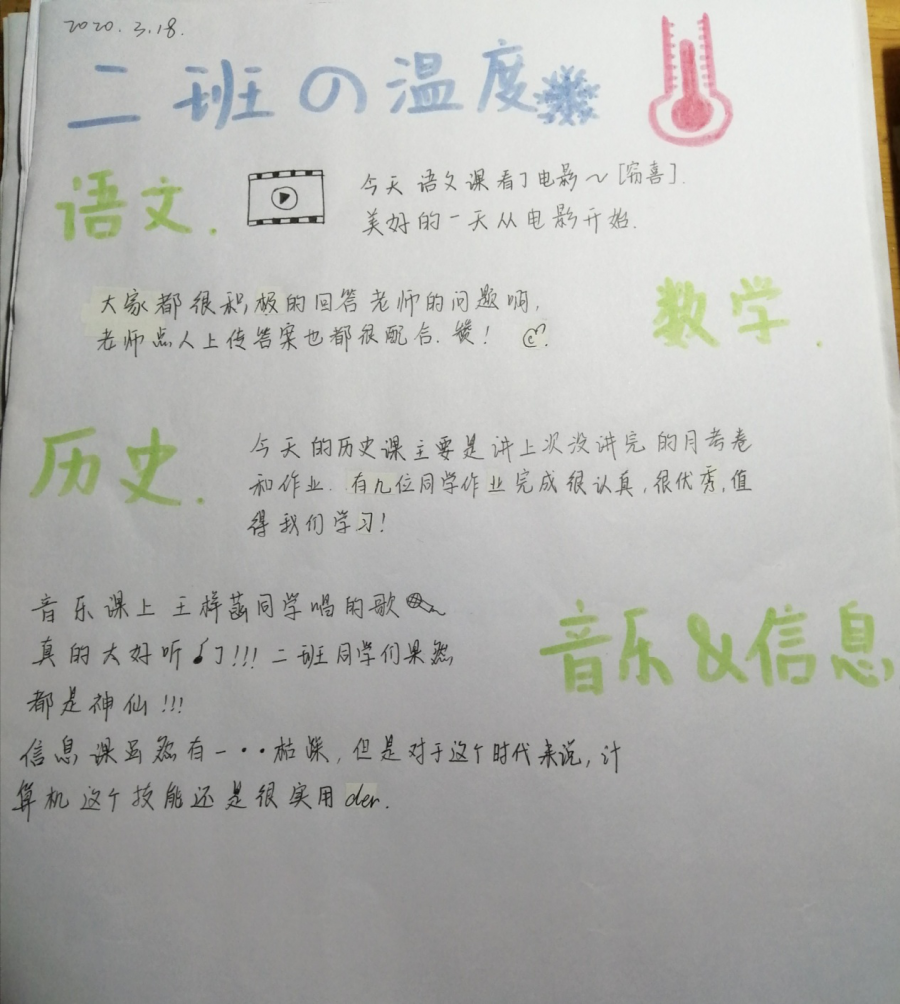 2020.3.18.
二班の温度
语文.
今天语文课看了电影~[窃喜].
美好的一天从电影开始.
数学.
大家都很积极的回答老师的问题啊,
老师点人上传答案也都很配合.赞!
历史.
今天的历史课主要是讲上次没讲完的月考卷
和作业.有九位同学作业完成很认真,很优秀,值
得我们学习!
音乐&信息
音乐课上王梓菡同学唱的歌
真的太好听了!!!二班同学们果然
都是神仙!!!
信息课虽然有一··枯燥,但是对于这个时代来说,计
算机这个技能还是很实用der.